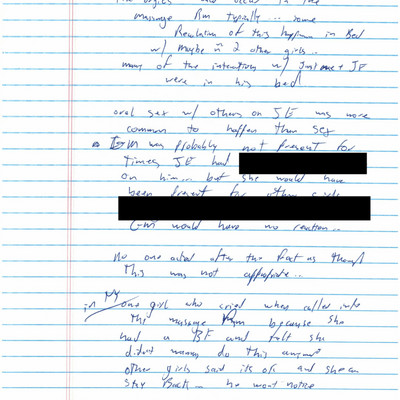 orgies occur in the
massage Rm typically... some
Revelation of this happen in Bed
w/ maybe ≈ 2 other girls..
many of the interactions w/ Just me + JE
were in his bed
oral sex w/ others on JE was more
common to happen than sex
GM was probably not present for
times JE had
on him... but she would have
been present for other girls
GM would have no reaction..
No one acted after the fact as though
this was not appropriate..
in NY one girl who cried when called into
the massage Rm because she
had a BF and felt she
didnt wanna do this anymore
other girls said its ok and she can
stay Back... he wont notice